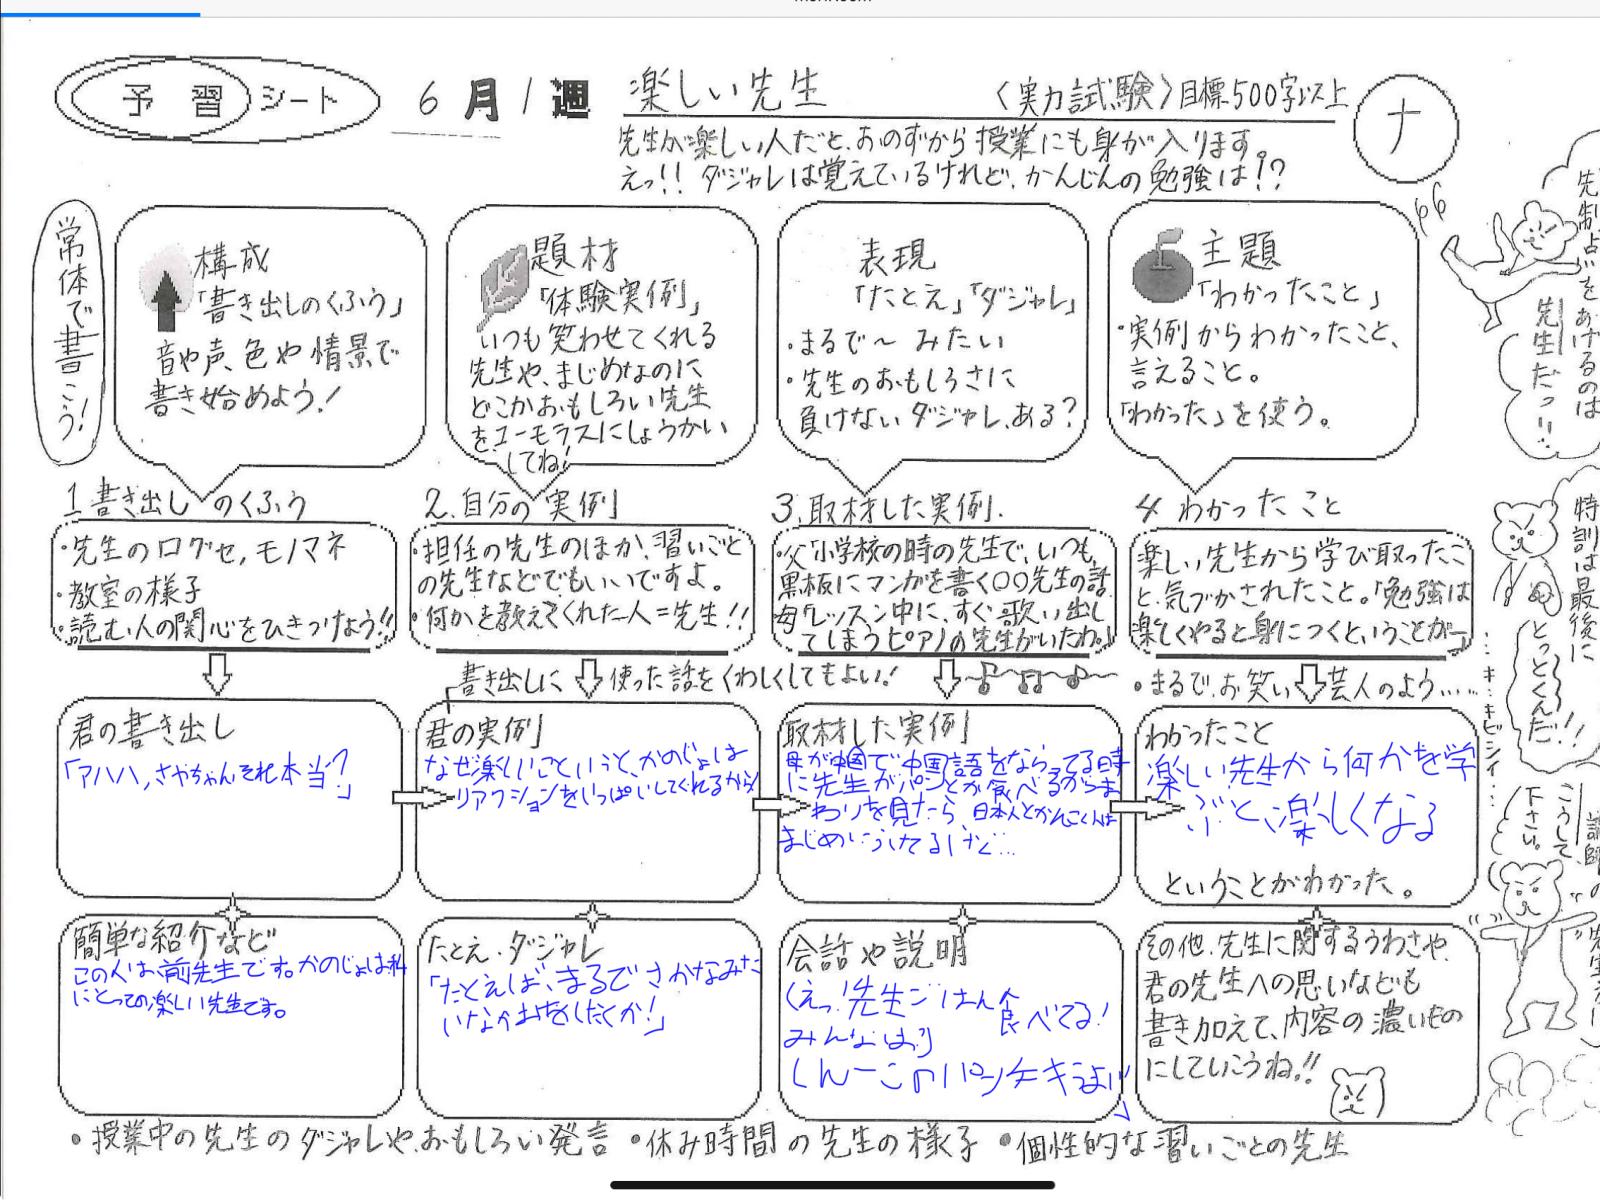 予習シート
6月1週
楽しい先生
〈実力試験〉目標500字以上
ナ
先生が楽しい人だと、おのずから授業にも身が入ります。
えっ!! ダジャレは覚えているけれど、かんじんの勉強は!?
常体で書こう!
構成
「書き出しのくふう」
音や声、色や情景で
書き始めよう!
題材
「体験実例」
いつも笑わせてくれる
先生や、まじめなのに
どこかおもしろい先生
をユーモラスにしょうかい
してね!
表現
「たとえ」「ダジャレ」
・まるで〜みたい
・先生のおもしろさに
負けないダジャレ、ある?
主題
「わかったこと」
・実例からわかったこと、
言えること。
「わかった」を使う。
1 書き出しのくふう
・先生の口グセ,モノマネ
・教室の様子
・読む人の関心をひきつけよう!!
2.自分の実例
・担任の先生のほか、習いごと
の先生などでもいいですよ。
・何かを教えてくれた人=先生!!
3.取材した実例.
・父「小学校の時の先生で、いつも、
黒板にマンガを書く〇〇先生の話
母「レッスン中に、すぐ歌い出し
てしまうピアノの先生がいたわ。」
4 わかったこと
楽しい先生から学び取ったこ
と、気づかされたこと。「勉強は
楽しくやると身につくということが〜」
書き出しに使った話をくわしくしてもよい!
・まるで、お笑い芸人のよう……
君の書き出し
「アハハ,さやちゃんそれ本当?」
君の実例
なぜ楽しいこというと、かのじょは
リアクションをいっぱいしてくれるから
取材した実例
母が中国で中国語をならってる時
に先生がパンとか食べるがらま
わりを見たら、日本人とかんこく人は
まじめにうけてるけど...
わかったこと
楽しい先生から何かを学
ぶと、楽しくなる
ということがわかった。
簡単な紹介など
この人は前先生です。かのじょは私
にとっての楽しい先生です。
たとえ.ダジャレ
「たとえば、まるでさかなみた
会話や説明
(えっ!先生ごはん食べてる!
みんなは?)
その他、先生に関するうわさや、
君の先生への思いなども
書き加えて、内容の濃いもの
にしていこうね!!
・授業中の先生のダジャレや、おもしろい発言 ・休み時間の先生の様子 ・個性的な習いごとの先生
先制点をあげるのは
先生だっ!!
特訓は最後に
とっとくんだ!!
…キ…キビシイ…
こうして
下さい。